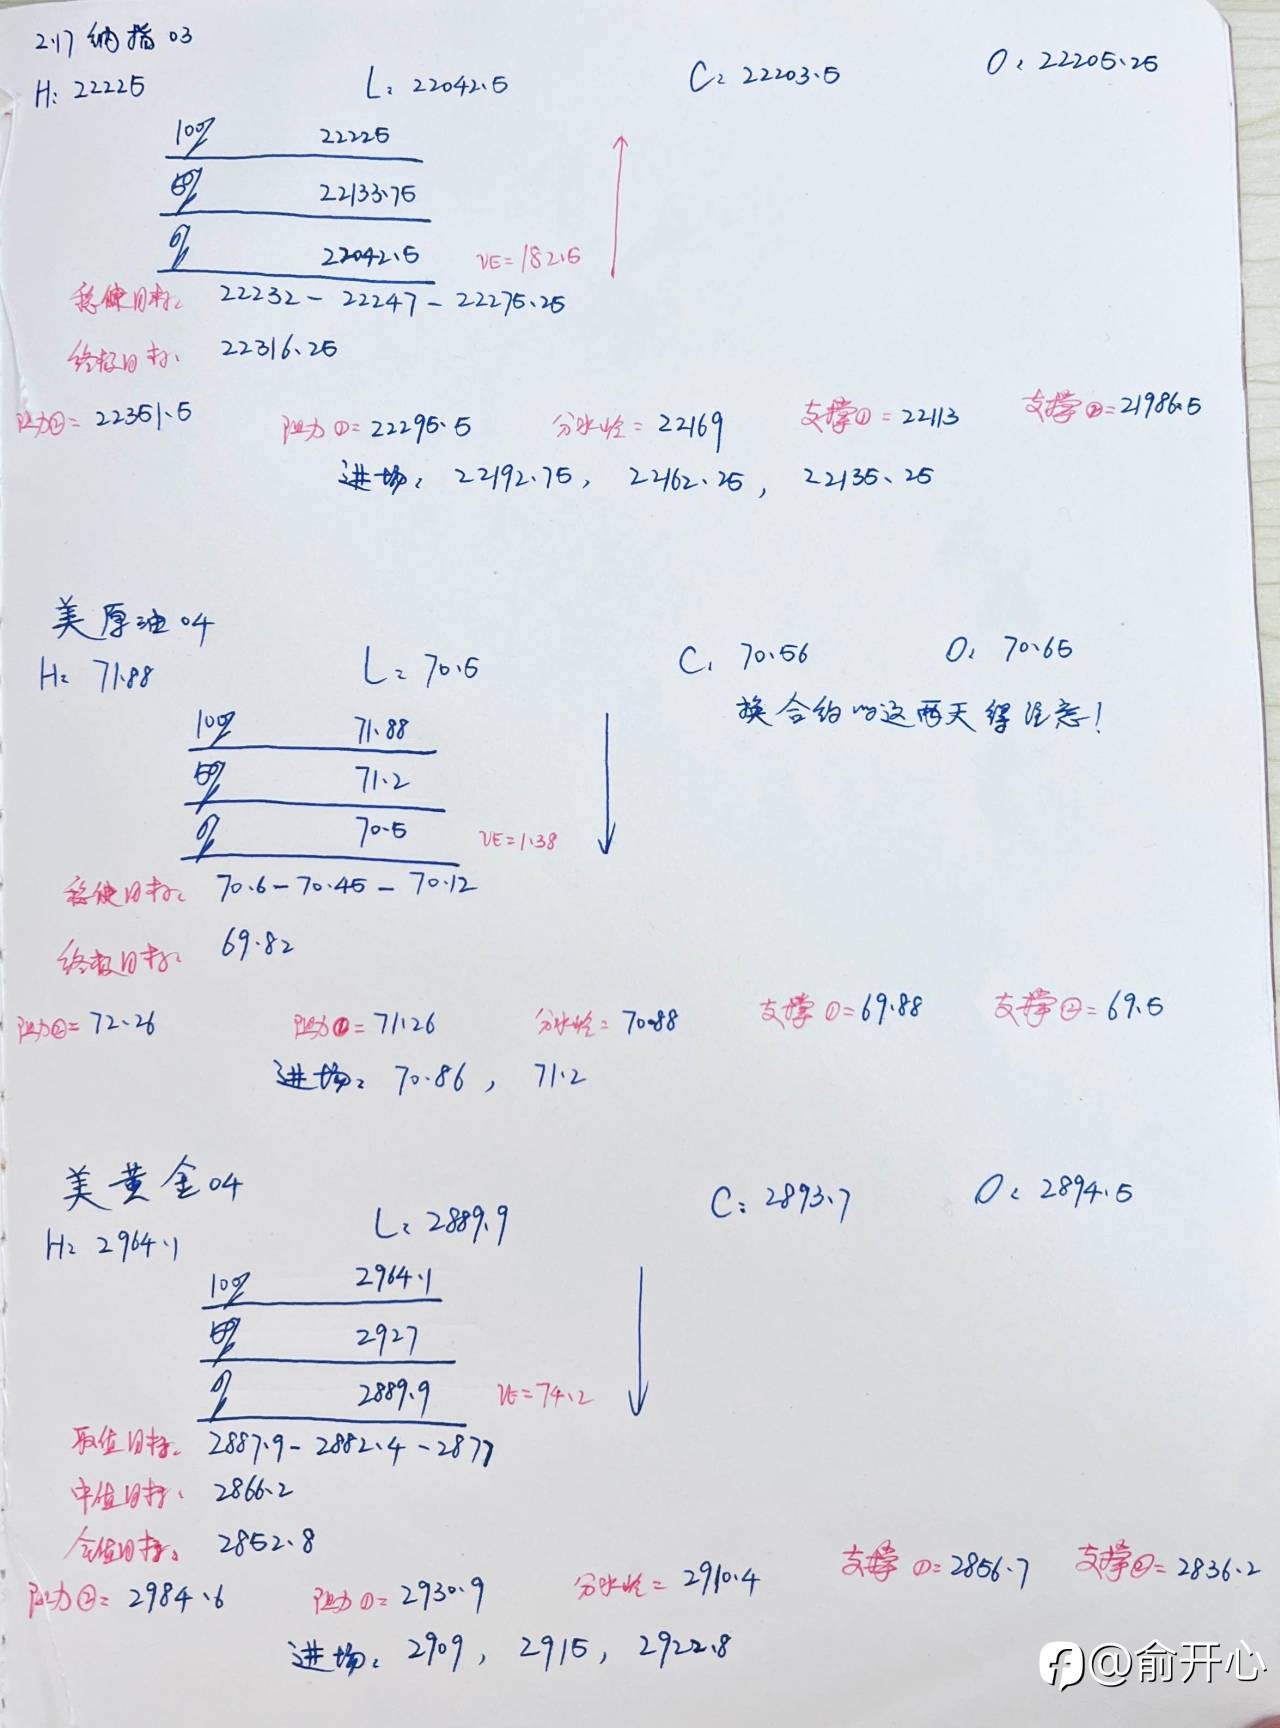 2.17 纳指 03
H: 22225 L: 22042.5 C: 22203.5 O: 22205.25
100% 22225
50% 22133.75
0% 22042.5 VE=182.5
稳健目标: 22232 - 22247 - 22275.25
终极目标: 22316.25
阻力②=22351.5 阻力①=22295.5 分水岭=22169 支撑①=22113 支撑②=21986.5
进场: 22192.75, 22162.25, 22135.25
美原油 04
H: 71.88 L: 70.5 C: 70.56 O: 70.65
换合约的这两天得注意!
100% 71.88
50% 71.2
0% 70.5 VE=1.38
稳健目标: 70.6 - 70.45 - 70.12
终极目标: 69.82
阻力②=72.26 阻力①=71.26 分水岭=70.88 支撑①=69.88 支撑②=69.5
进场: 70.86, 71.2
美黄金 04
H: 2964.1 L: 2889.9 C: 2893.7 O: 2894.5
100% 2964.1
50% 2927
0% 2889.9 VE=74.2
取值目标: 2887.9 - 2882.4 - 2877
中值目标: 2866.2
全值目标: 2852.8
阻力②=2984.6 阻力①=2930.9 分水岭=2910.4 支撑①=2856.7 支撑②=2836.2
进场: 2909, 2915, 2922.8
@俞开心